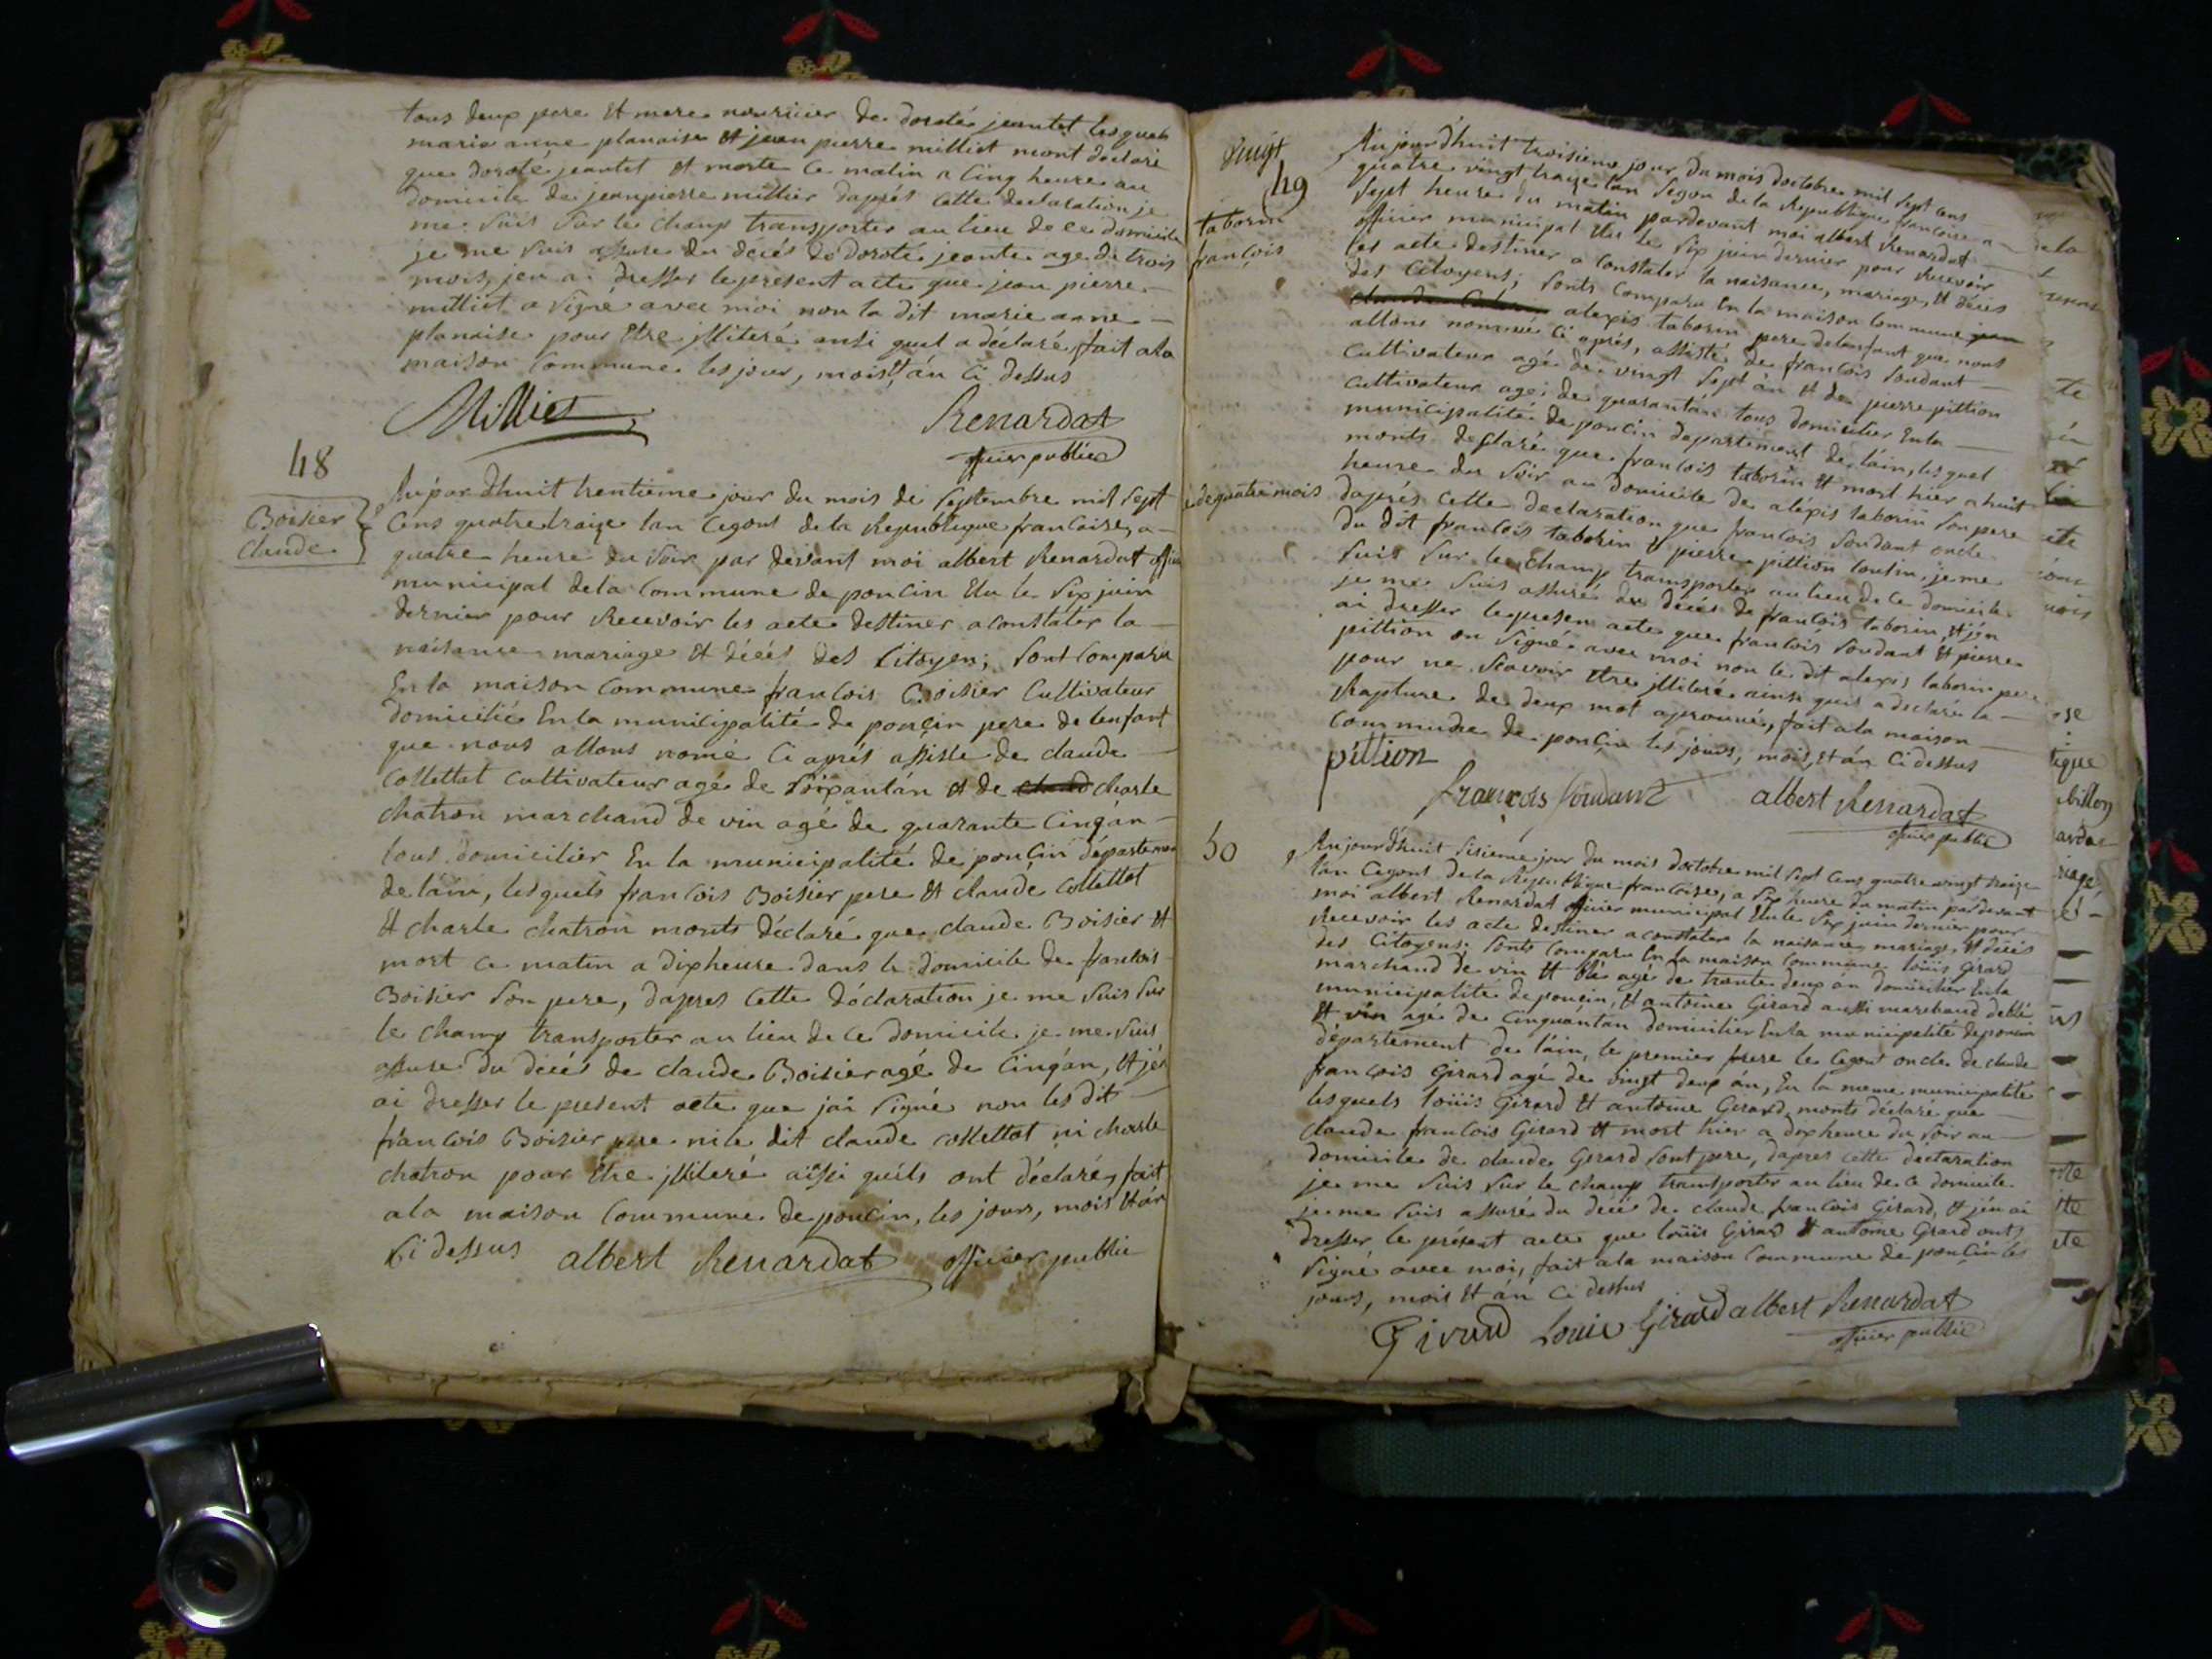 tous deux pere et mere nourricier de doroté jeantet lesquels
marie anne planaise et jean pierre milliet mont déclaré
que doroté jeantet et morte ce matin a cinq heure au
domicile de jean pierre millier daprés cette declaration je
me suis sur le champ transporter au lieu de ce domicile
je me suis assure du décés de doroté jeante age de trois
mois, jen ai dresser le présent acte que jean pierre
milliet a signé avec moi non la dit marie anne
planaise pour etre jlliteré ansi quel a déclaré, fait ala
maison commune les jour, mois et án ci dessus
Milliet Renardat
officier public
48
Boisier
claude
Aujourdhuit trentieme jour du mois de septembre mil sept
cens quatre traize lan cegont de la Republique francaise, a
quatre heure du soir par devant moi albert Renardat offici
municipal de la commune de poncin Elu le six juin
dernier pour Recevoir les acte destiner a constater la
naisance mariage et décés des Citoyens; sont comparu
En la maison commune francois Boisier Cultivateur
domicilié En la municipalité de poncin pere de lenfant
que nous allons nomé ci aprés assisté de claude
Collettat cultivateur agé de soixantán et de claud charle
chatron marchand de vin agé de quarante cinq án
tous domicilier En la municipalité de poncin départemen
de láin, lesquels francois Boisier pere et claude collettat
et charle chatron monts déclaré que claude Boisier et
mort ce matin a dix heure dans le domicile de francois
Boisier son pere, dapres cette déclaration je me suis sur
le champ transporter au lieu de ce domicile je me suis
assure du décés de claude Boisier agé de cinq án, et jén
ai dresser le present acte que jai signé non les dit
francois Boisier pere ni le dit claude collettat ni charle
chatron pour être jlliteré aissi quils ont déclaré, fait
ala maison commune de poncin, les jours, mois et án
Ci dessus albert Renardat officier public
vingt
49
taborin
françois
Aujourdhuit troisieme jour du mois doctobre mil sept cens
quatre vingt traize lan segon de la Republique francoise a
sept heure du matin pardevant moi albert Renardat
officier municipal Elu le six juin dernier pour Recevoir
les acte destiner a constater la naisance, mariage, et décés
des Citoyens; sonts comparu En la maison commune
alexis taborin pere de lenfant que nous
allons nommé ci aprés, assisté de francois soudant
cultivateur agé de vingt sept án et de pierre pittion
cultivateur agé de quarantán tous domicilier En la
municipalité de poncin departement de láin, lesquel
monts déclaré que francois taborin et mort hier a huit
age de quatre mois heure du soir au domicile de aléxis taborin son pere
daprés cette declaration que francois soudant oncle
du dit francois taborin & pierre pittion cousin, je me
suis sur le champ transporter au lieu de ce domicile
je me suis assure du décés de françois taborin, et jén
ai dresser le presen acte que francois soudant et pierre
pittion on signé avec moi non le dit alexis taborin pere
pour ne scavoir etre jlliteré ainsi quil a declaré la
Rapture de deux mot aprouvé, fait ala maison
commune de poncin les jours, mois, et án ci dessus
pittion
françois soudant albert Renardat
officier public
50
Aujourdhuit sisieme jour du mois doctobre mil sept cens quatre vingt traize
lán cegont de la Republique francoise, a six heure du matin pardevant
moi albert Renardat officier municipal Elu le six juin dernier pour
Recevoir les acte destiner a constater la naisance, mariage, et décés
des Citoyens; sonts compare En la maison commune loüis Girard
marchand de vin et blé agé de trente deux án domicilier En la
municipalité de poncin, et antoine Girard aussi marchand de blé
et vin agé de cinquántán domicilier En la municipalité de poncin
département de láin, le premier frere le cegont oncle de claude
françois Girard agé de vingt deux án, En la meme municipalité
lesquels loüis Girard et antoine Girard monts déclaré que
claude francois Girard et mort hier a dix heure du soir au
domicile de claude Girard sont pere, dapres cette declaration
je me suis sur le champ transporter au lieu de ce domicile
je me suis assuré du décé de claude françois Girard, et jén ai
dresser le présent acte que loüis Girard et antoine Girard ont
signé avec moi, fait ala maison commune de poncin les
jours, mois et án ci dessus
Girard Louis Girard albert Renardat
officier public